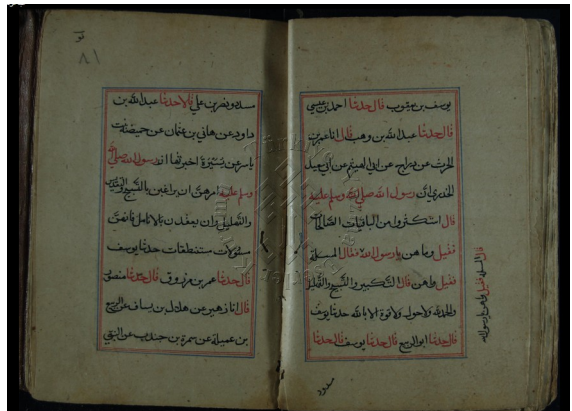 يوسف بن يعقوب قال حدثنا احمد بن عيسى
قال حدثنا عبد الله بن وهب قال انا عمرو بن
الحرث عن دراج عن ابي الهيثم عن ابي سعيد
الخدري ان رسول الله صلى الله وسلم عليه
قال استكثروا من الباقيات الصالحات
فقيل وما هن يا رسول الله فقال المسلة
فقيل وما هن قال التكبير والتسبيح والتهليل
والحمد لله ولا حول ولا قوة الا بالله حدثنا يوسف
قال حدثنا ابو الربيع قال حدثنا يوسف قال حدثنا
قال المسلة فقيل وما هن يا رسول الله
٨١
مسدد ونصر بن علي قالا حدثنا عبد الله بن
داود عن هاني بن عثمان عن حميضة بنت
ياسر عن يسيرة اخبرتها ان رسول الله صلى الله
وسلم عليه امرهن ان يراعين بالتسبيح والتقديس
والتهليل وان يعقدن بالانامل فانهن
مسؤلات مستنطقات حدثنا يوسف
قال حدثنا عمر بن مرزوق قال حدثنا منصور
قال انا زهير عن هلال بن يساف عن الربيع
بن عميلة عن سمرة بن جندب عن النبي